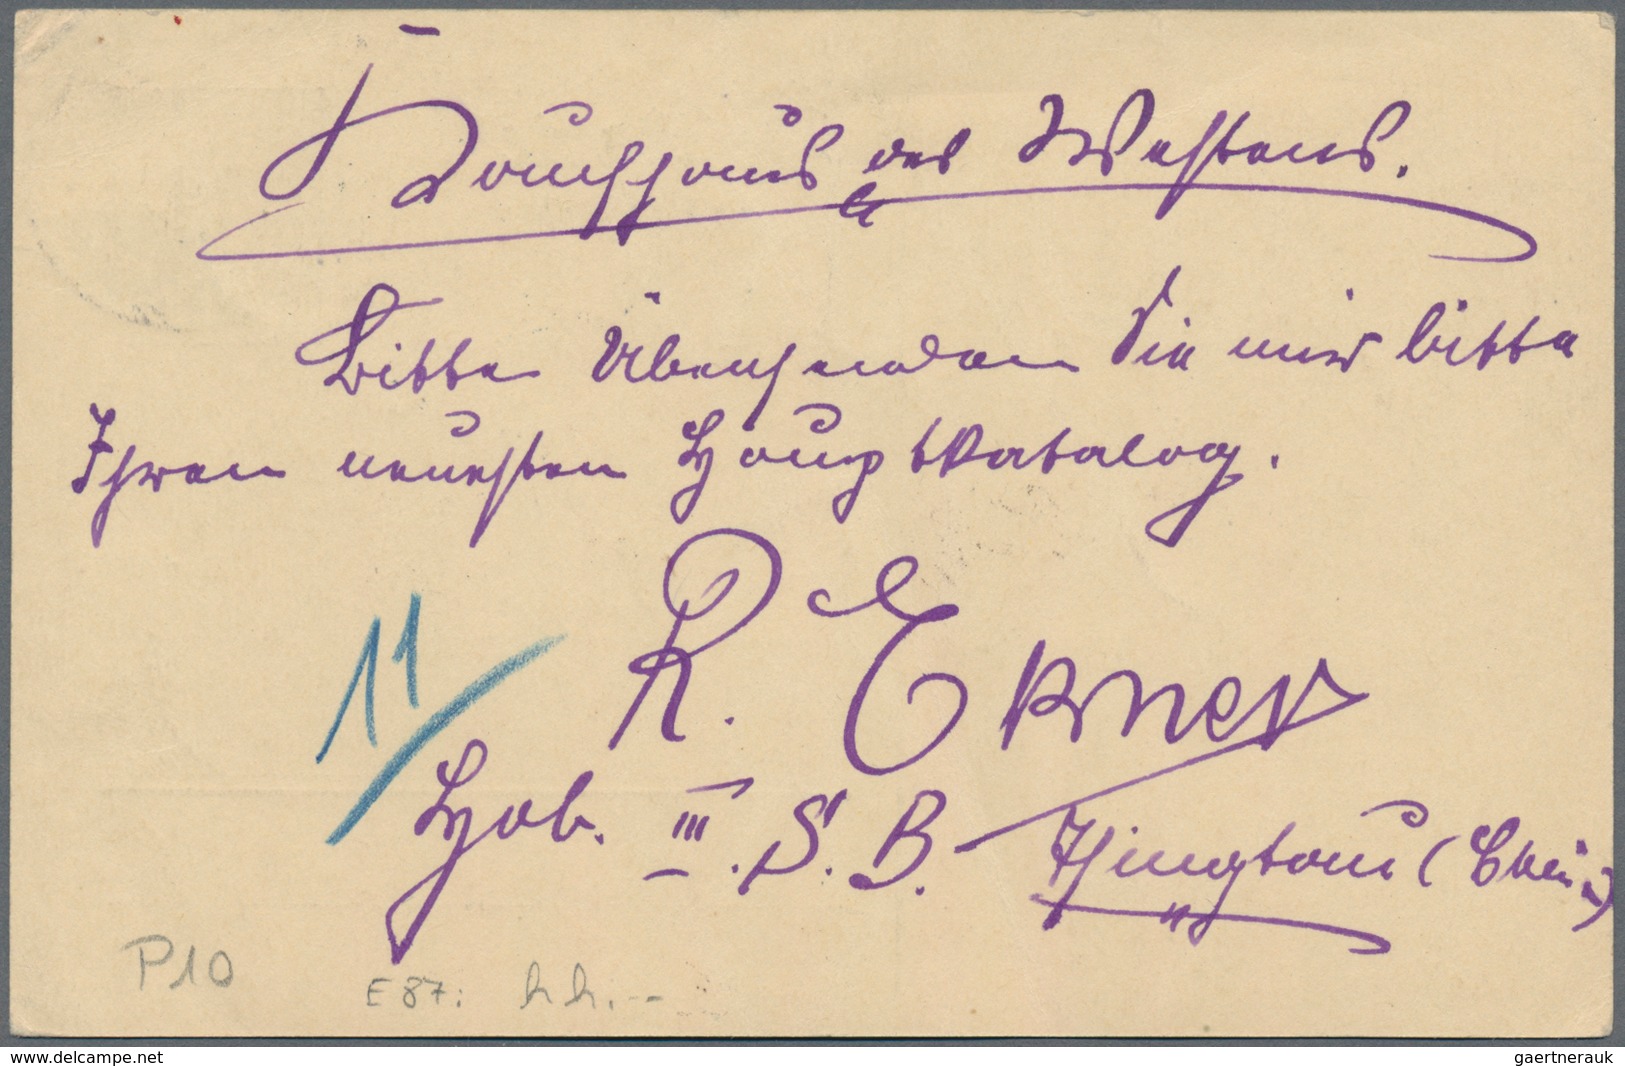 Kaufhaus des Westens.
Bitte Übersenden Sie mir bitte
Ihren neuesten Hauptkatalog.
R. Ekner
11
Hob. III. S. B. Tsingtau (China)
P10
E 87:
www.delcampe.net
gaertnerauk